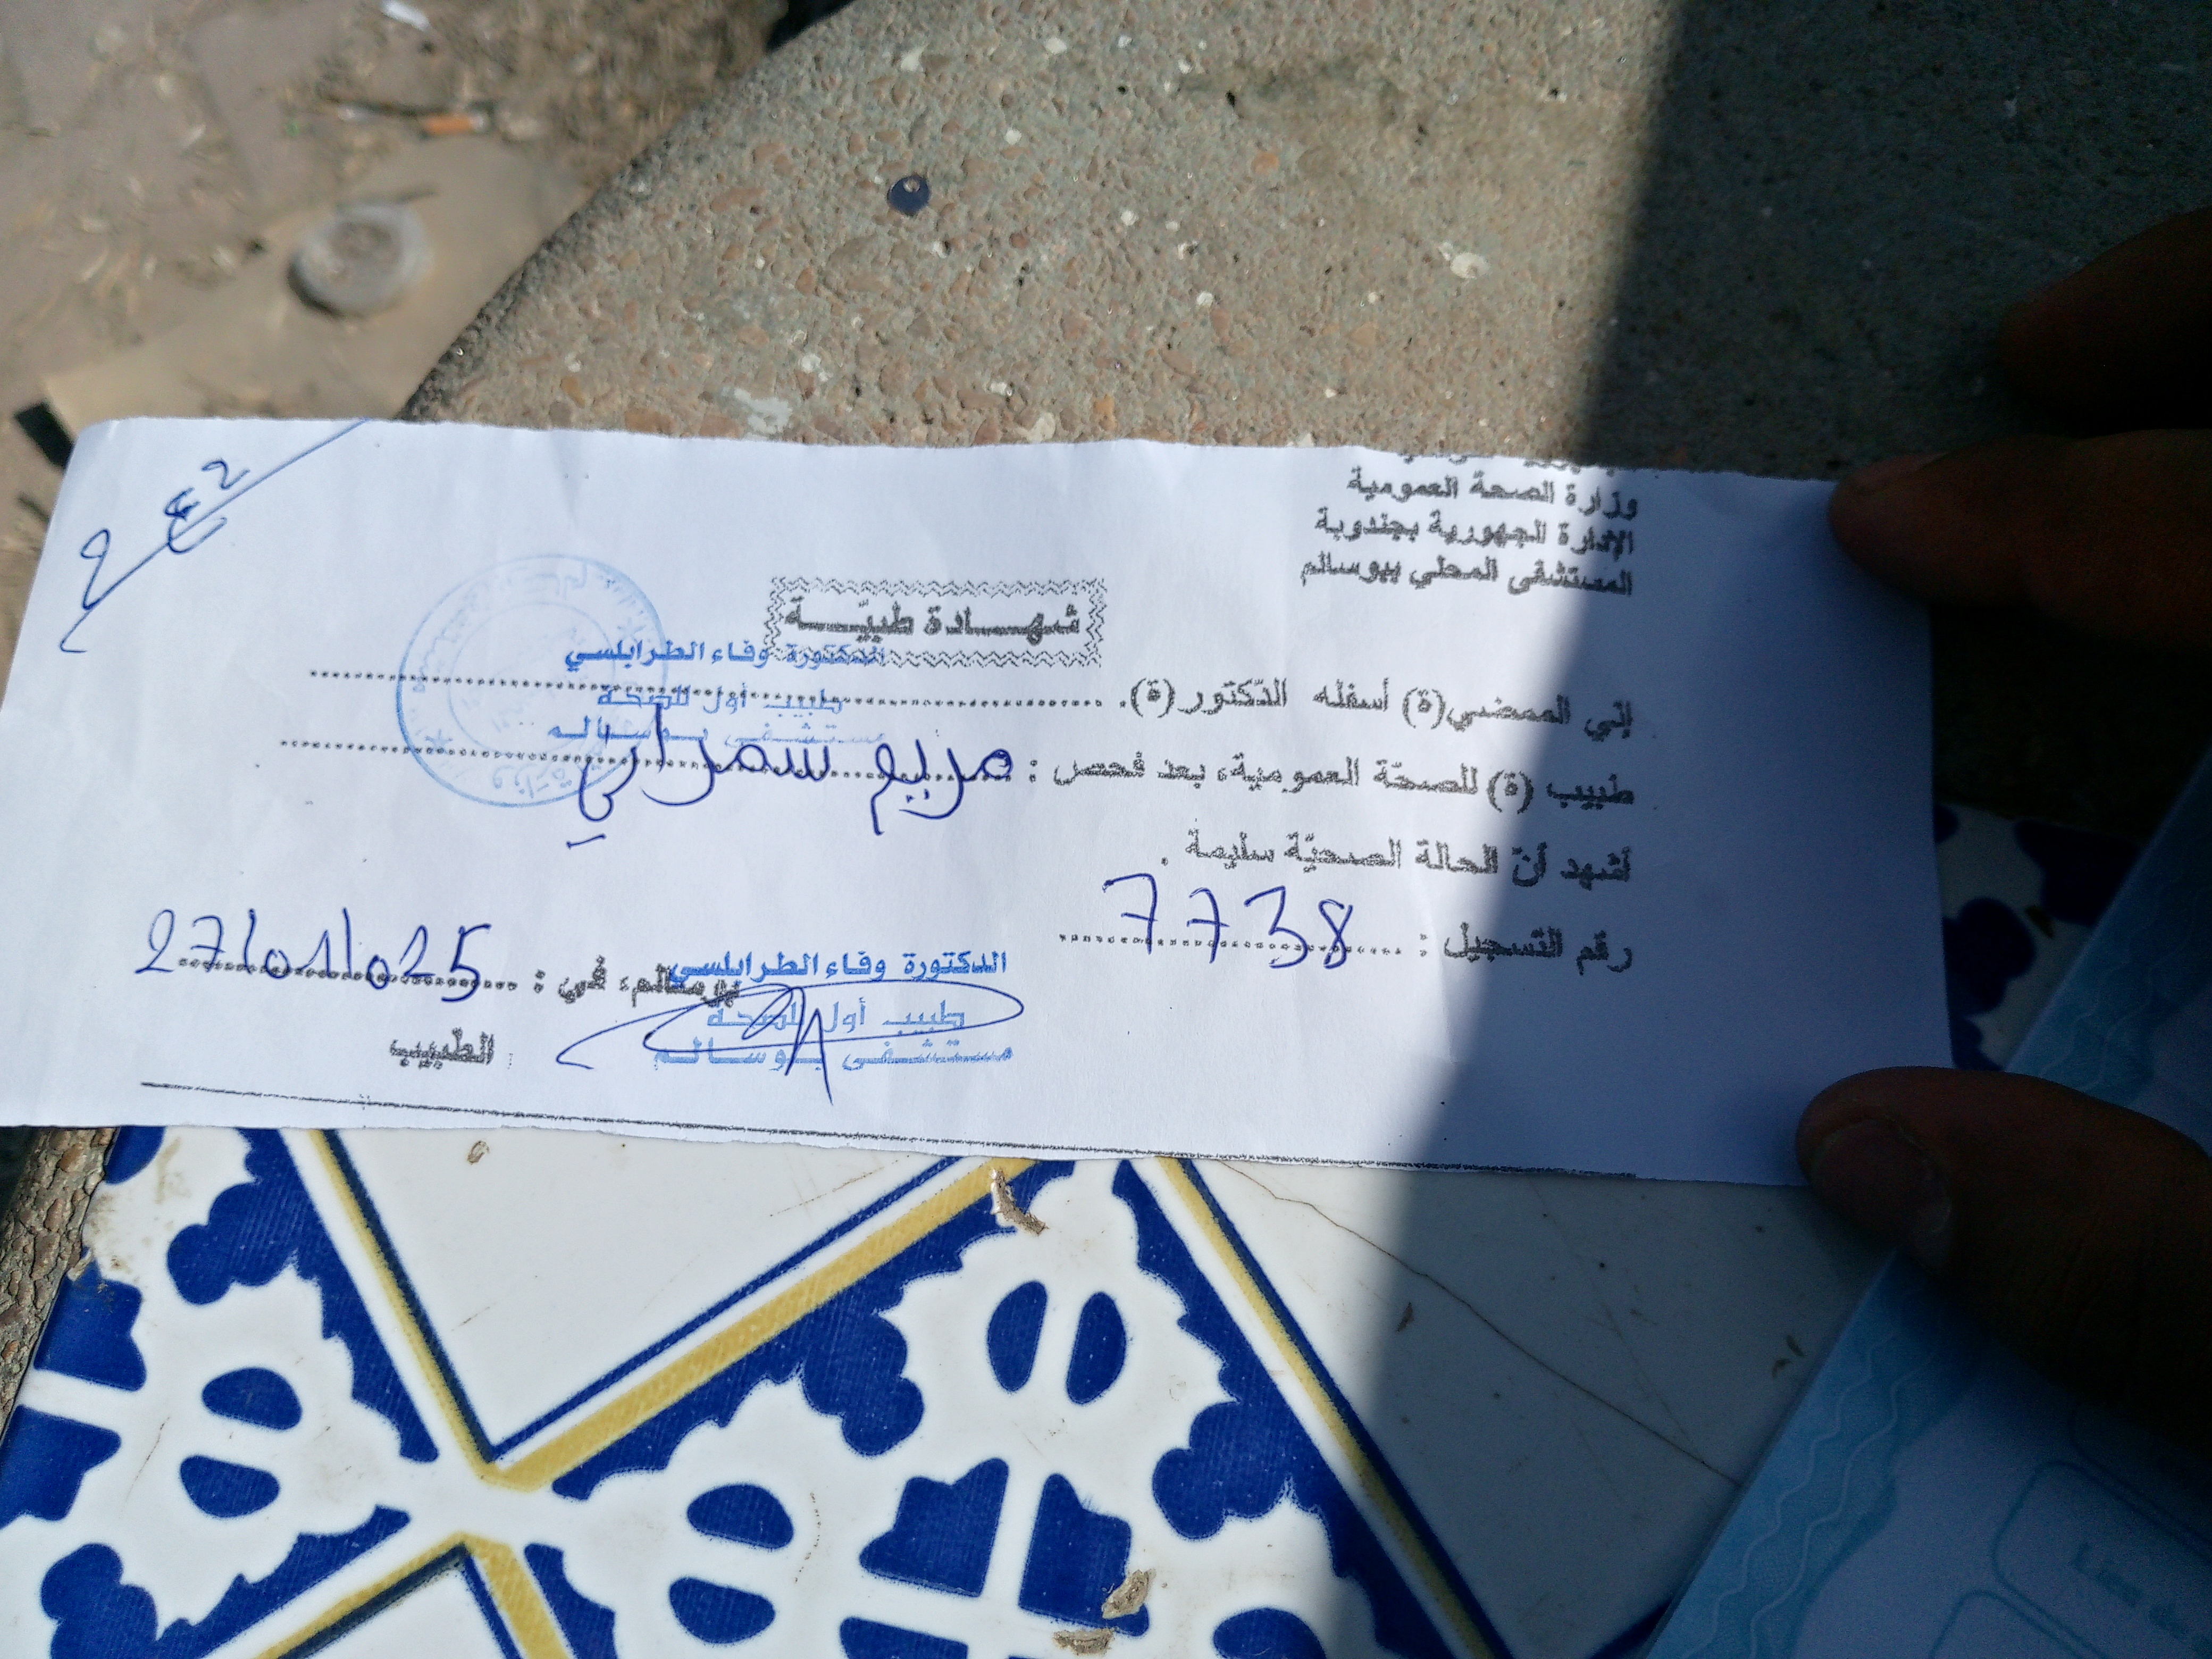 وزارة الصحة العمومية
الإدارة الجهورية بجندوبة
المستشفى المحلي ببوسالم
شهــادة طبيّــة
الدكتورة وفاء الطرابلسي
طبيب أول للصحة
مستشفى بوسالم
إني الممضي(ة) أسفله الدّكتور(ة).
طبيب (ة) للصحّة العمومية، بعد فحص : مريم سمراني
أشهد أنّ الحالة الصحيّة سليمة .
رقم التسجيل : 7738
بوسالم، في : 27/01/025
الدكتورة وفاء الطرابلسي
طبيب أول للصحة
مستشفى بوسالم
الطّبيب